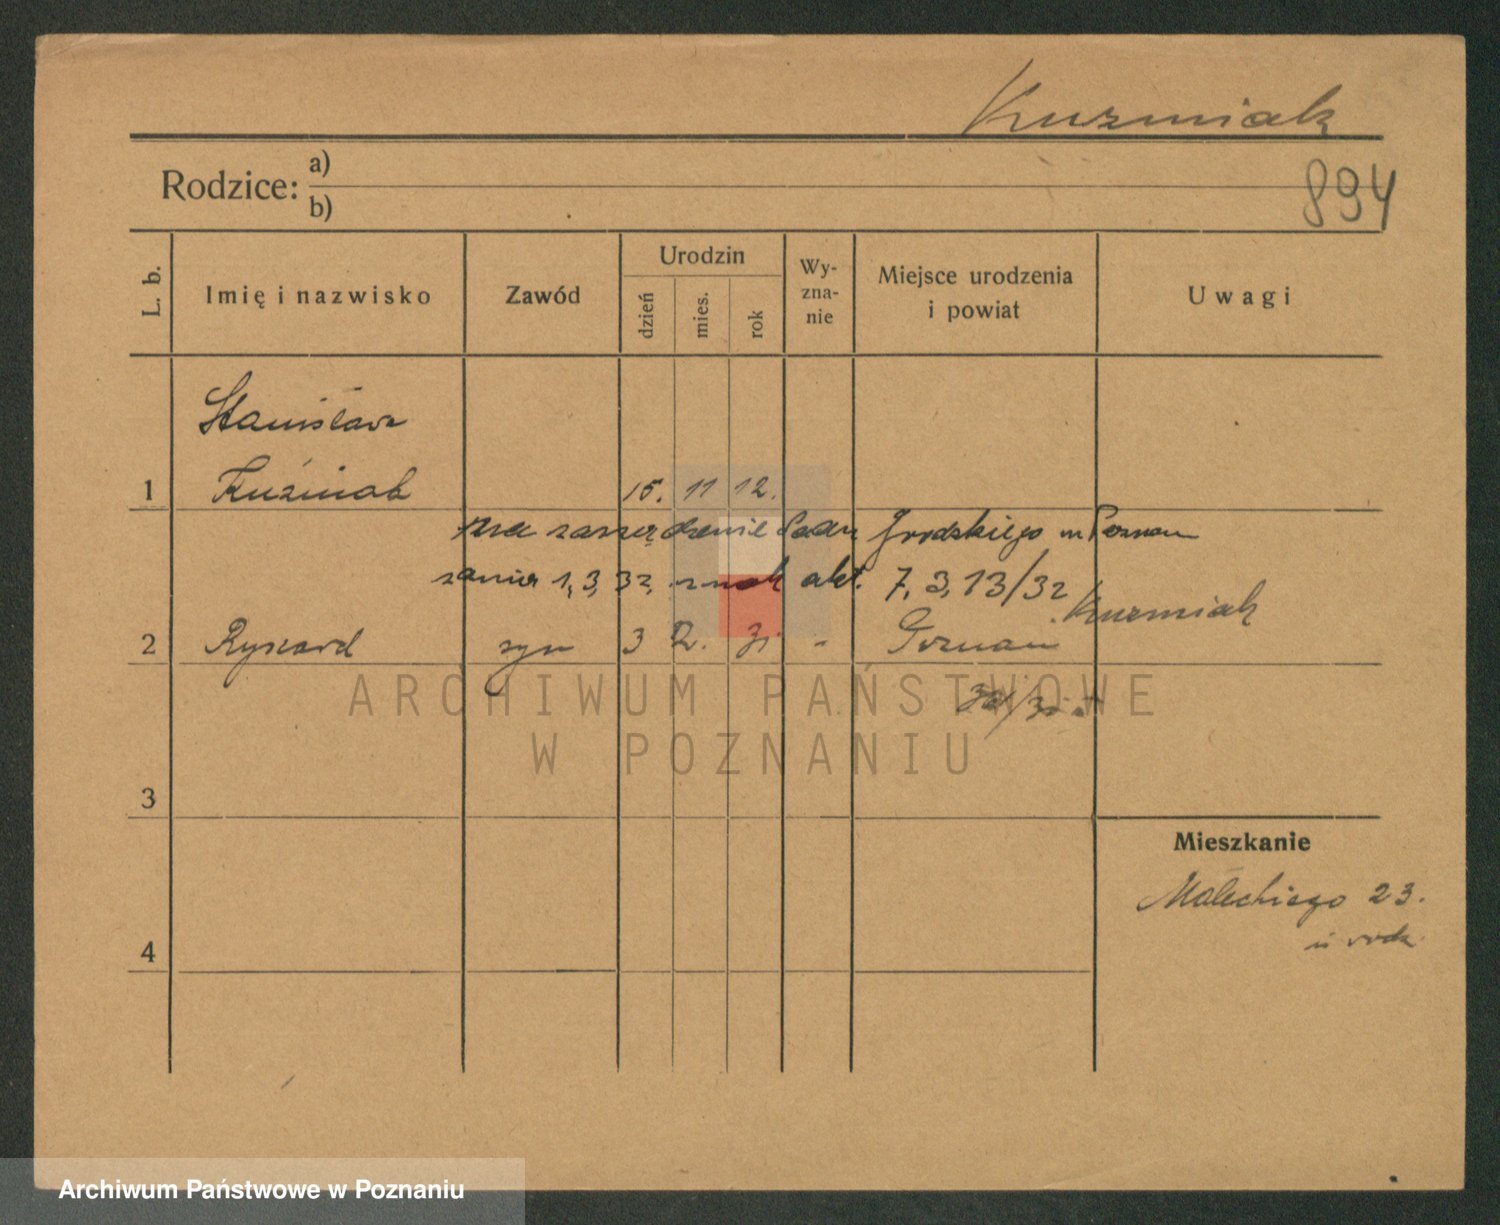 Kuzmiak
Rodzice: a)
b)
894
L. b.
Imię i nazwisko
Zawód
Urodzin
dzień
mies.
rok
Wy-
zna-
nie
Miejsce urodzenia
i powiat
Uwagi
Stanisław
1 Kuźniak 15. 11 12.
na zarządzenie Sądu Grodzkiego w Poznan
1, 3, 32, znak akt. 7, 3, 13/32
Kuzmiak
2 Ryszard syn 3 2. 31. - Poznan
ARCHIWUM PAŃSTWOWE
W POZNANIU
3
Mieszkanie
Małeckiego 23.
4
Archiwum Państwowe w Poznaniu